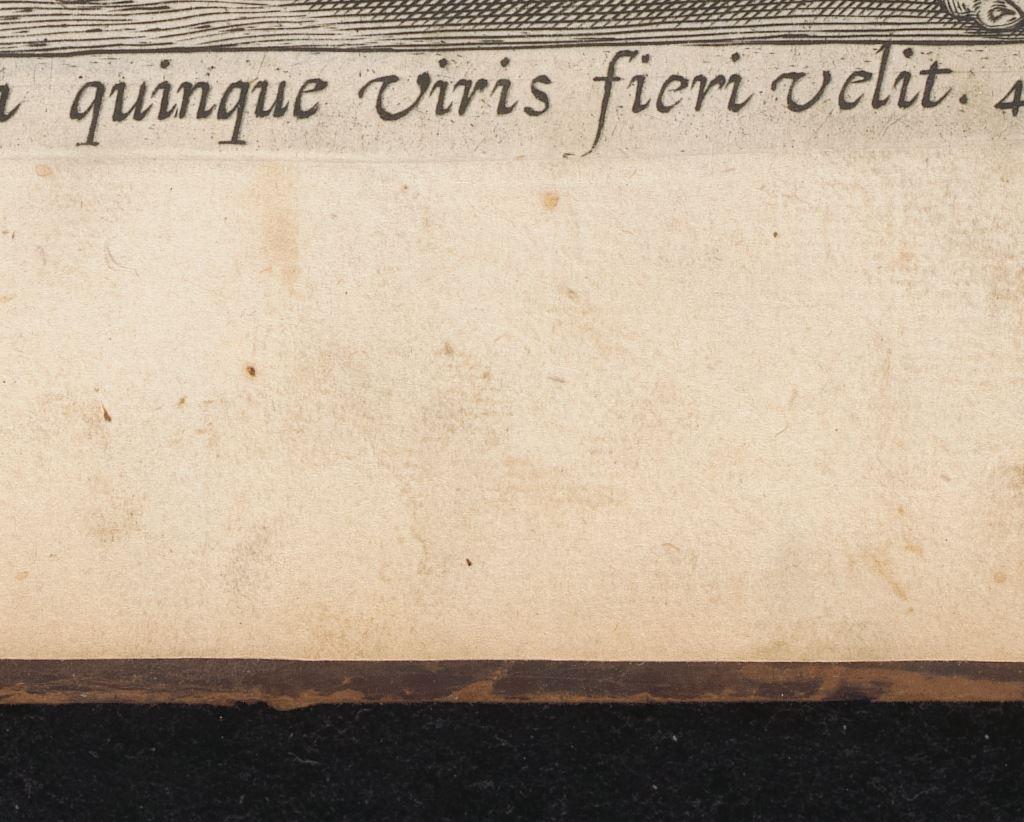 quinque viris fieri velit. 4